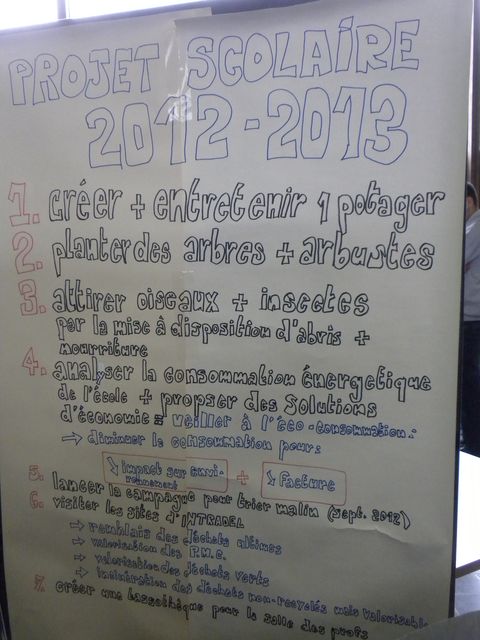 PROJET SCOLAIRE
2012-2013
1. créer + entretenir 1 potager
2. planter des arbres + arbustes
3. attirer oiseaux + insectes
par la mise à disposition d'abris +
nourriture
4. analyser la consommation énergetique
de l'école + propser des solutions
d'économie = veiller à l'éco-consommation.
→ diminuer la consommation pour:
↘ impact sur envi-
ronnement + ↘ facture
5. lancer la campagne pour trier malin (sept. 2012)
6. visiter les sites d'INTRADEL
→ remblais des déchets ultimes
→ valorisation des P.M.C.
→ valorisation des déchets verts
→ incinération des déchets non-recyclés mais valorisable
7. créer une tassothèque pour la salle des profs